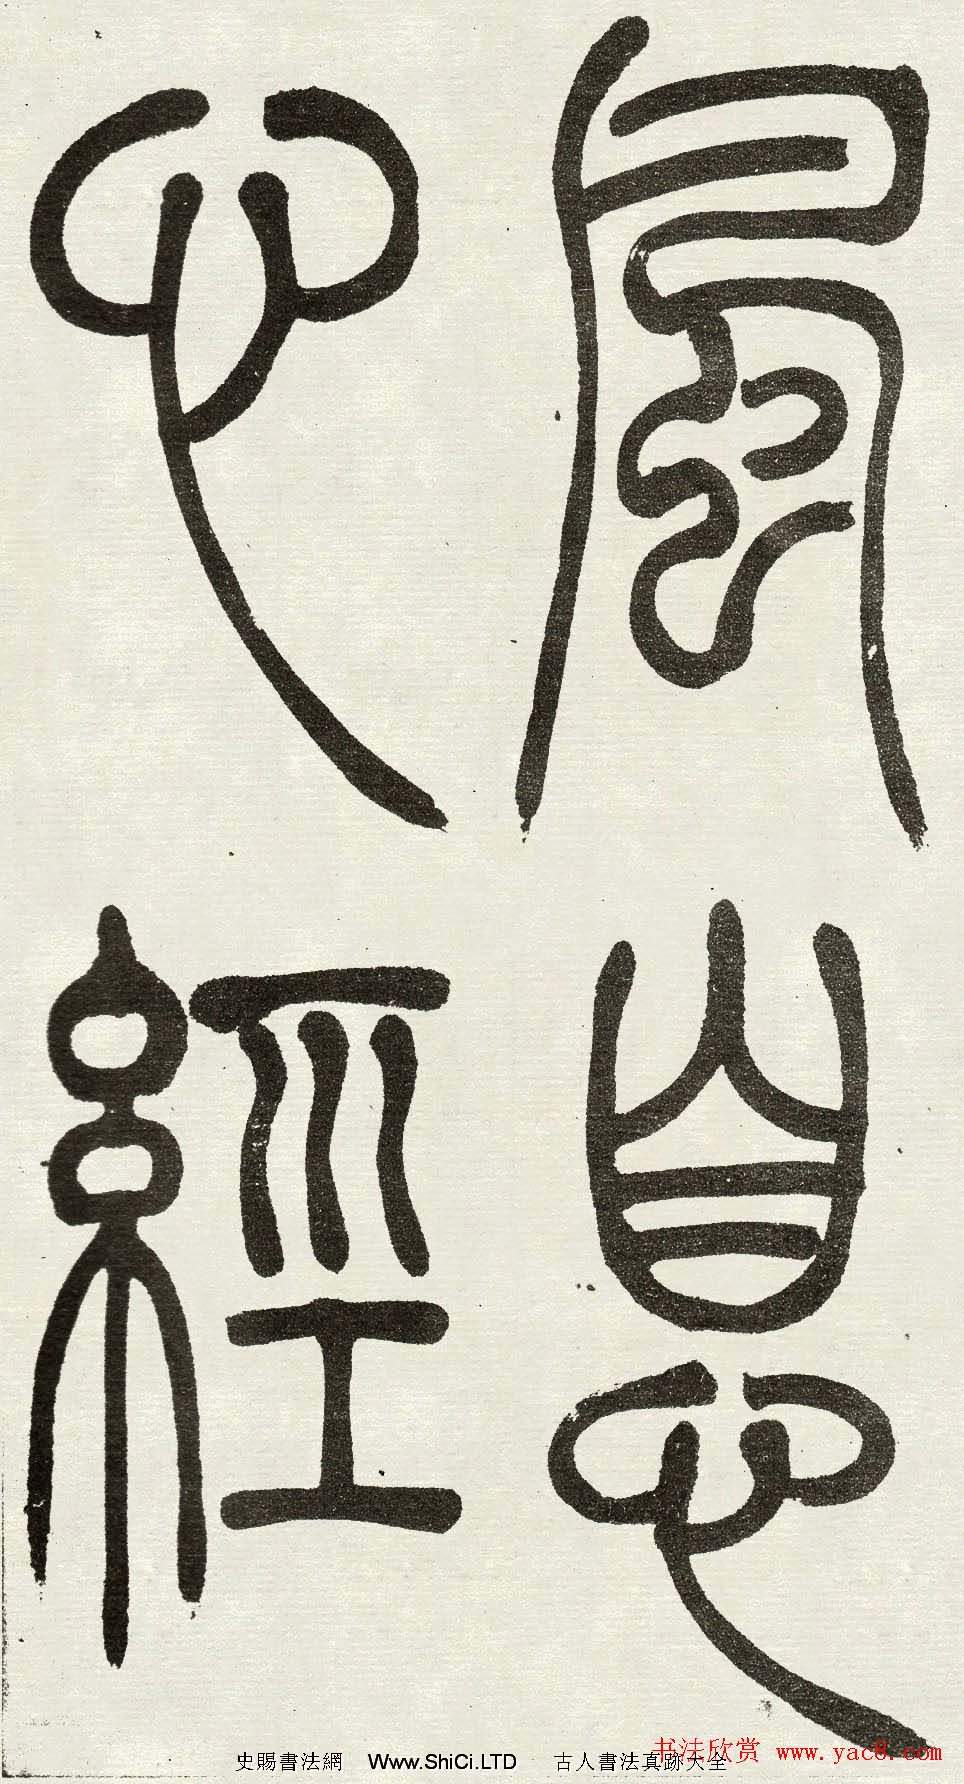 息
心經
史賜書法網 Www.ShiCi.LTD 古人書法真跡大全
书法欣赏 www.yac8.com